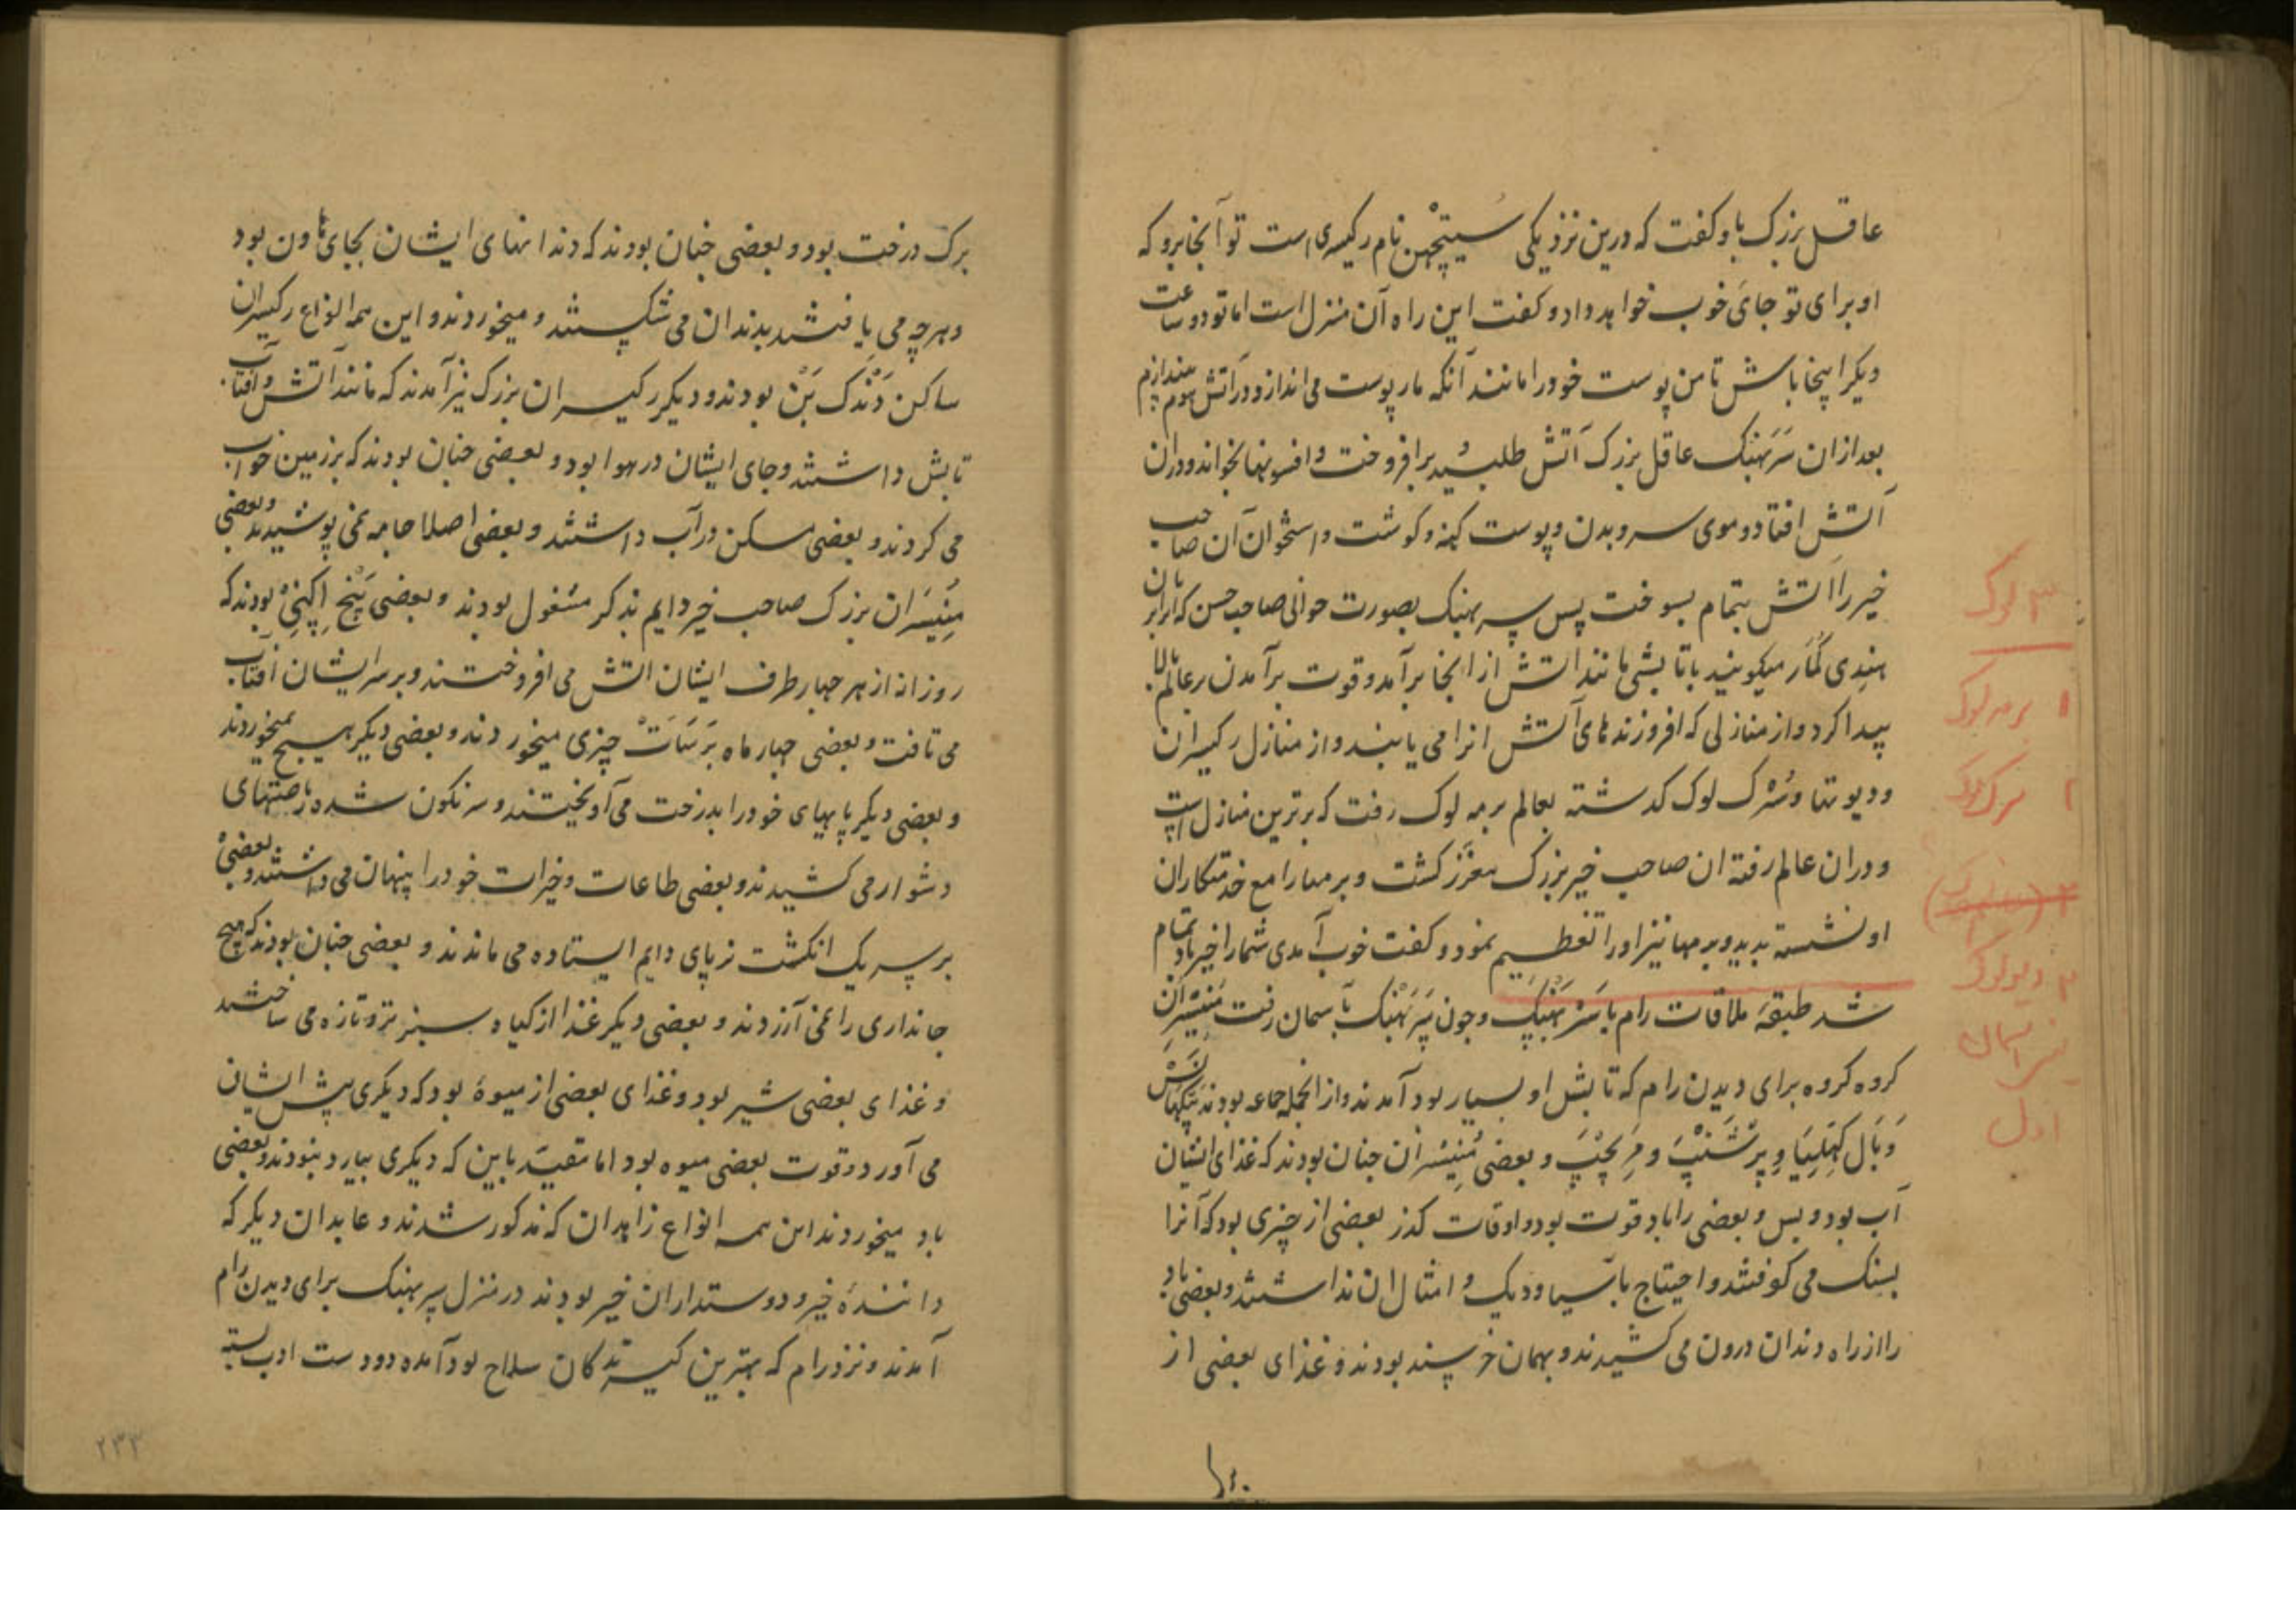 عاقل بزرک باو کفت که درین نزدیکی سیتچهن نام رکیسری است تو آنجا برو که
او برای تو جای خوب خواهد داد و کفت این راه آن منزل است اما تو دو ساعت
دیکر اینجا باش تا من پوست خود را مانند آنکه مار پوست می اندازد در آتش هوم بیندازم
بعد ازان سَرَبهنک عاقل بزرک آتش طلبیده برافروخت و افسونها بخواند و دران
آتش افتاد و موی سر و بدن و پوست کهنه و کوشت و استخوان آن صاحب
خیر را آتش بتمام بسوخت پس سربهنک بصورت جوانی صاحب حسن که انرا بزبان
هندی کُمَار میکویند باتابشی مانند آتش از انجا برآمد و قوت برآمدن بر عالم بالا
پیدا کرد و از منازلی که افروزندهای آتش انرا می یابند و از منازل رکیسران
و دیوتها و سُرک لوک کدشته بعالم برمه لوک رفت که برترین منازل است
و دران عالم رفته ان صاحب خیر بزرک معزز کشت و برمها را مع خدمتکاران
او نشسته بدید و برمها نیز او را تعظیم نمود و کفت خوب آمدی شما را خیر باد تمام
شد طبقهٔ ملاقات رام با سَرْبَهَنک و چون سَرَبهَنک بآسمان رفت مُنیسَران
کروه کروه برای دیدن رام که تابش او بسیار بود آمدند و از انجمله جماعه بودند
وَ بَال کَهِلِیَا و و مَرِیچپَ و بعضی مُنیسران چنان بودند که غذای ایشان
آب بود و بس و بعضی را باد قوت بود و اوقات کذر بعضی از چیزی بود که آنرا
بسنک می کوفتند و احتیاج بآسیا و دیک و امثال ان نداشتند و بعضی باد
را از راه دندان درون می کشیدند و بهمان خرسند بودند و غذای بعضی از
۳ لوک
۱ برمه لوک
۲ سرک لوک
۳ دیولوک
یعنی آسمان
اول
برک درخت بود و بعضی چنان بودند که دندانهای ایشان بجای هاون بود
و هرچه می یافتند بدندان می شکستند و میخوردند و این همه انواع رکیسران
ساکن دَنْدَک بَنْ بودند و دیکر رکیسران بزرک نیز آمدند که مانند آتش و آفتاب
تابش داشتند و جای ایشان در هوا بود و بعضی چنان بودند که بر زمین خواب
می کردند و بعضی مسکن در آب داشتند و بعضی اصلا جامه نمی پوشیدند و بعضی
مُنیسَران بزرک صاحب خیر دایم بذکر مشغول بودند و بعضی پَنْچ اَکِنِیْ بودند که
روزانه از هر چهار طرف ایشان آتش می افروختند و بر سر ایشان آفتاب
می تافت و بعضی چهار ماه بَرْسَات چیزی میخوردند و بعضی دیکر هیچ نمیخوردند
و بعضی دیکر پایهای خود را بدرخت می آویختند و سرنکون شده ریاضتهای
دشوار می کشیدند و بعضی طاعات و خیرات خود را پنهان می داشتند و بعضی
بر سر یک انکشت نر پای دایم ایستاده می ماندند و بعضی چنان بودند که هیچ
جانداری را نمی آزردند و بعضی دیکر غذا از کیاه سبز تر و تازه می ساختند
و غذای بعضی شیر بود و غذای بعضی از میوهٔ بود که دیکری پیش ایشان
می آورد و قوت بعضی میوه بود اما مقیّد باین که دیکری بیارد نبودند و بعضی
باد میخوردند این همه انواع زاهدان که مذکور شدند و عابدان دیکر که
دانندهٔ خیر و دوستداران خیر بودند در منزل سربهنک برای دیدن رام
آمدند و نزد رام که بهترین کیرندکان سلاح بود آمده دو دست ادب بسته
۲۳۳